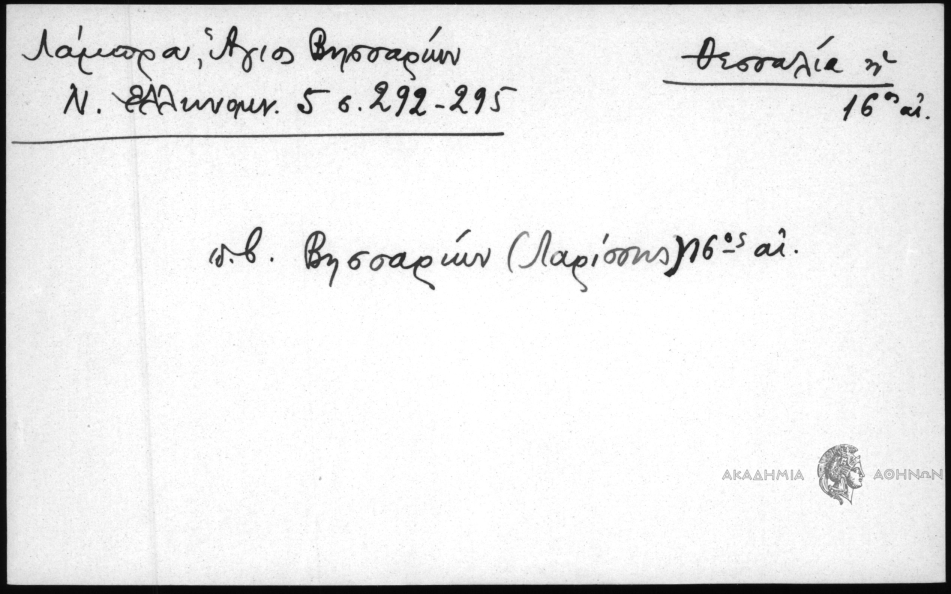 Λάμπρου, Ἅγιος Βησσαρίων
Ν. Ἑλληνομν. 5 σ. 292-295
Θεσσαλία
16ος αἰ.
π.β. Βησσαρίων (Λαρίσσης) 16ος αἰ.
ΑΚΑΔΗΜΙΑ ΑΘΗΝΩΝ